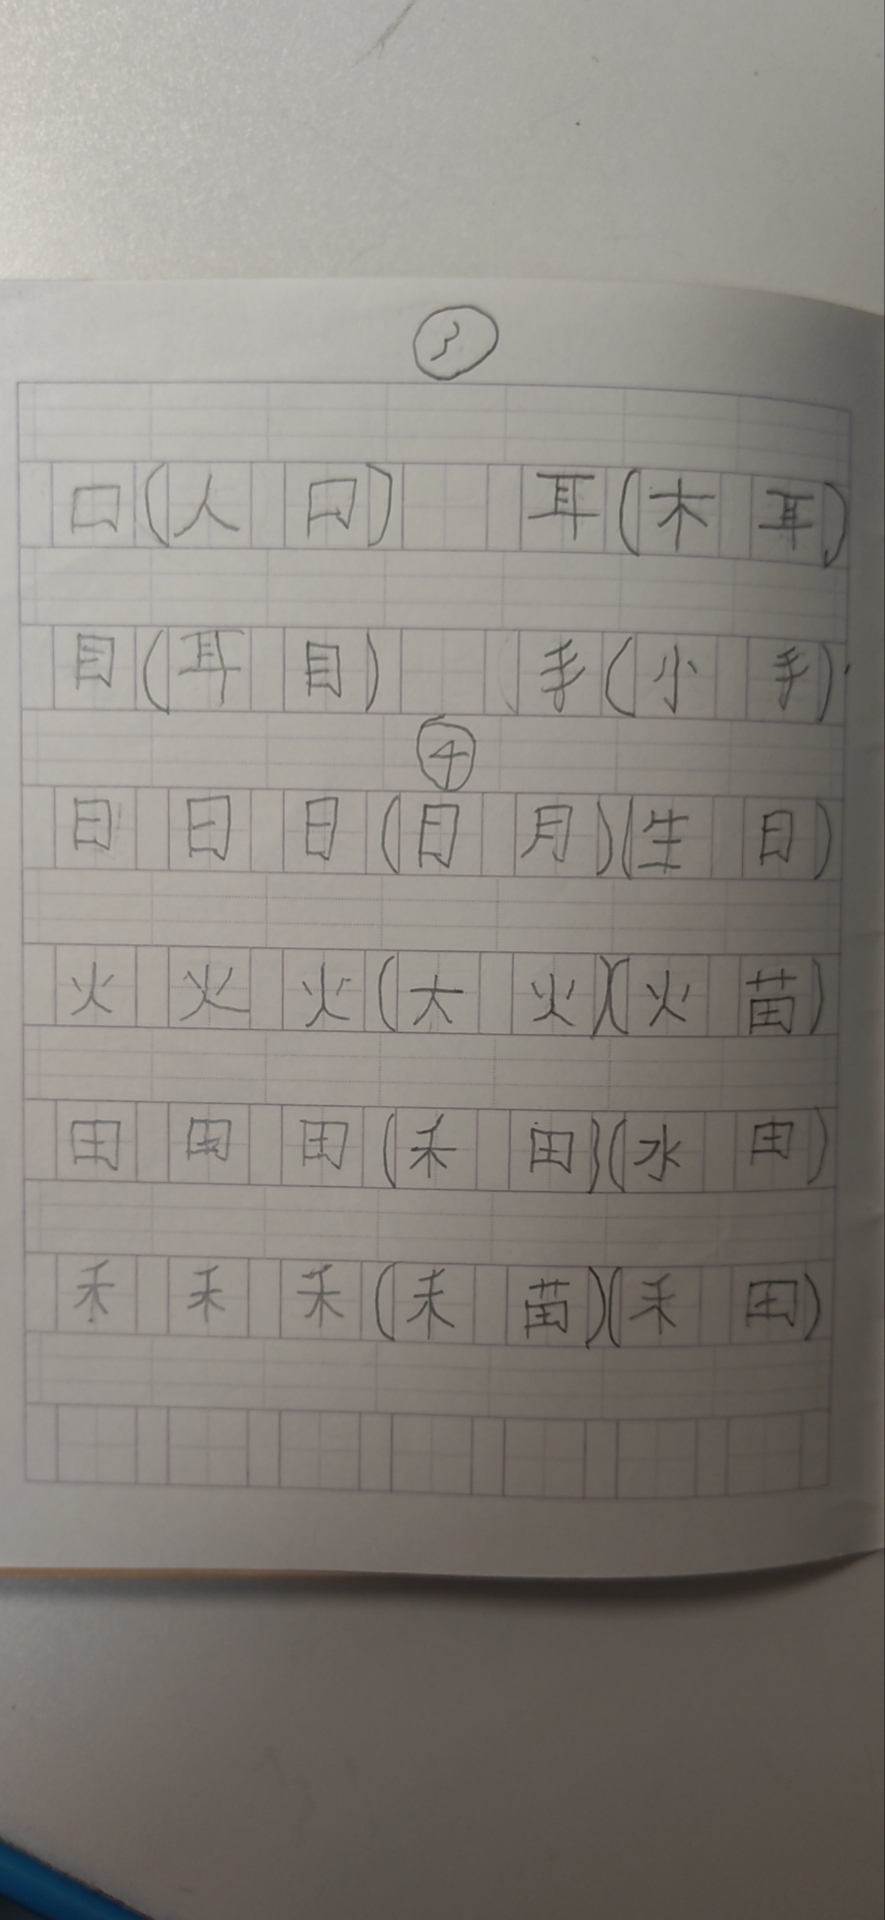 ③
口(人口) 耳(木耳)
目(耳目) 手(小手)
④
日日日(日月)(生日)
火火火(大火)(火苗)
田田田(禾田)(水田)
禾禾禾(禾苗)(禾田)